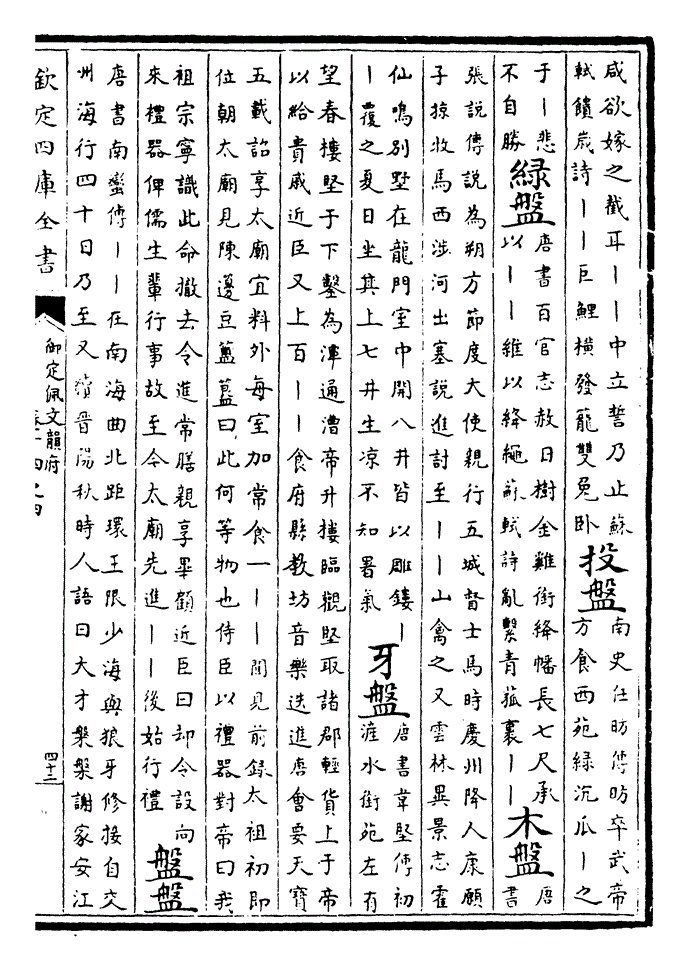 咸欲嫁之截耳丨丨中立誓乃止蘇
軾饋歲詩丨丨巨鯉橫發籠雙兔卧
投盤
南史任昉傳昉卒武帝
方食西苑綠沉瓜丨之
于丨悲
不自勝
綠盤
唐書百官志赦日樹金雞銜絳幡長七尺承
以丨丨維以絳繩蘇軾詩亂繫青菰裹丨丨
木盤
唐
書
張說傳說為朔方節度大使親行五城督士馬時慶州降人康願
子掠牧馬西涉河出塞說進討至丨丨山禽之又雲林異景志霍
仙鳴別墅在龍門室中開八井皆以雕鏤丨
丨覆之夏日坐其上七井生凉不知暑氣
牙盤
唐書韋堅傳初
滻水銜苑左有
望春樓堅于下鑿為潭通漕帝升樓臨觀堅取諸郡輕貨上于帝
以給貴戚近臣又上百丨丨食府縣教坊音樂迭進唐會要天寶
五載詔享太廟宜料外每室加常食一丨丨聞見前錄太祖初即
位朝太廟見陳籩豆簠簋曰此何等物也侍臣以禮器對帝曰我
祖宗寧識此命撤去令進常膳親享畢顧近臣曰却令設向
來禮器俾儒生輩行事故至今太廟先進丨丨後始行禮
盤盤
唐書南蠻傳丨丨在南海曲北距環王限少海與狼牙修接自交
州海行四十日乃至又續晉陽秋時人語曰大才槃槃謝家安江
欽定四庫全書
御定佩文韻府
四十二